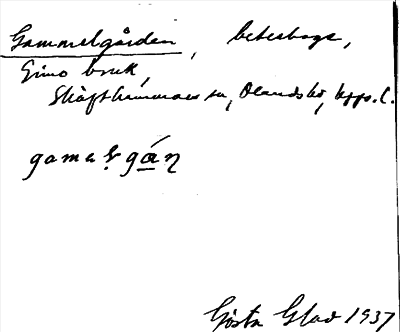 Gammelgården, beteshage,
Gimo bruk,
Skäfthammars sn, Olands hd, Upps. l.
gama
Gösta Glad 1937